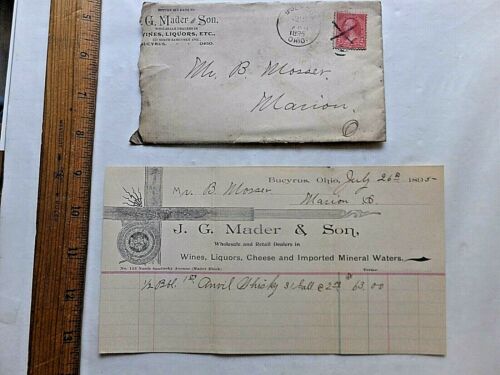 RETURN IN FIVE DAYS TO
J. G. Mader & Son,
WHOLESALE DEALERS IN
WINES, LIQUORS, ETC.,
BUCYRUS, OHIO.
OHIO.
Mr. B. Mosser.
Marion
O
Bucyrus, Ohio, July 26th 1895
Mr B. Mosser
Marion O.
J. G. Mader & Son,
Wholesale and Retail Dealers in
Wines, Liquors, Cheese and Imported Mineral Waters.
No. 125 North Sandusky Avenue (Mader Block)
Terms
1/2 Bbl. 1st Anvil Whisky 31 Gall @ 2 63.00
5
6
7
8
9
10
11
12
13